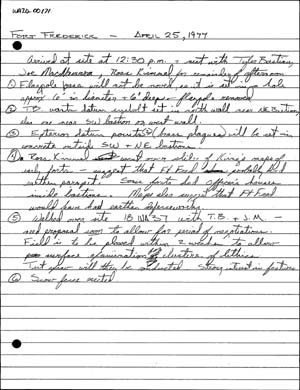 WAZG 00171
FORT FREDERICK – APRIL 25, 1977
Arrived at site at 12:30 p.m. + met with Tyler Bastian,
Joe , Ross Kimmel for remainder of afternoon
① Flagpole base will not be moved, as it is set in a hole
approx 6" in diameter + 6' deep – flagpole removed.
② T.B. wants datum symbol set in north wall near NE Bastion,
also one near SW bastion on west wall.
③ Exterior datum points (brass plaques) will be set in
concrete outside SW + NE bastions.
④ Ross Kimmel went over of King's maps of
early forts – suggest that Ft Fred. probably had
earthen parapet. Some forts had officer's houses
inside bastions. Maps also suggest that Ft Fred
would have had earthen outerworks.
⑤ Walked over site 18 WA 57 with T.B. + J.M. –
need proposal soon to allow for period of negotiations.
Field is to be plowed within 2 weeks to allow
surface examination of clusters of lithics.
Test squares will then be conducted. Strong interest in features
⑥ Snow fence erected.